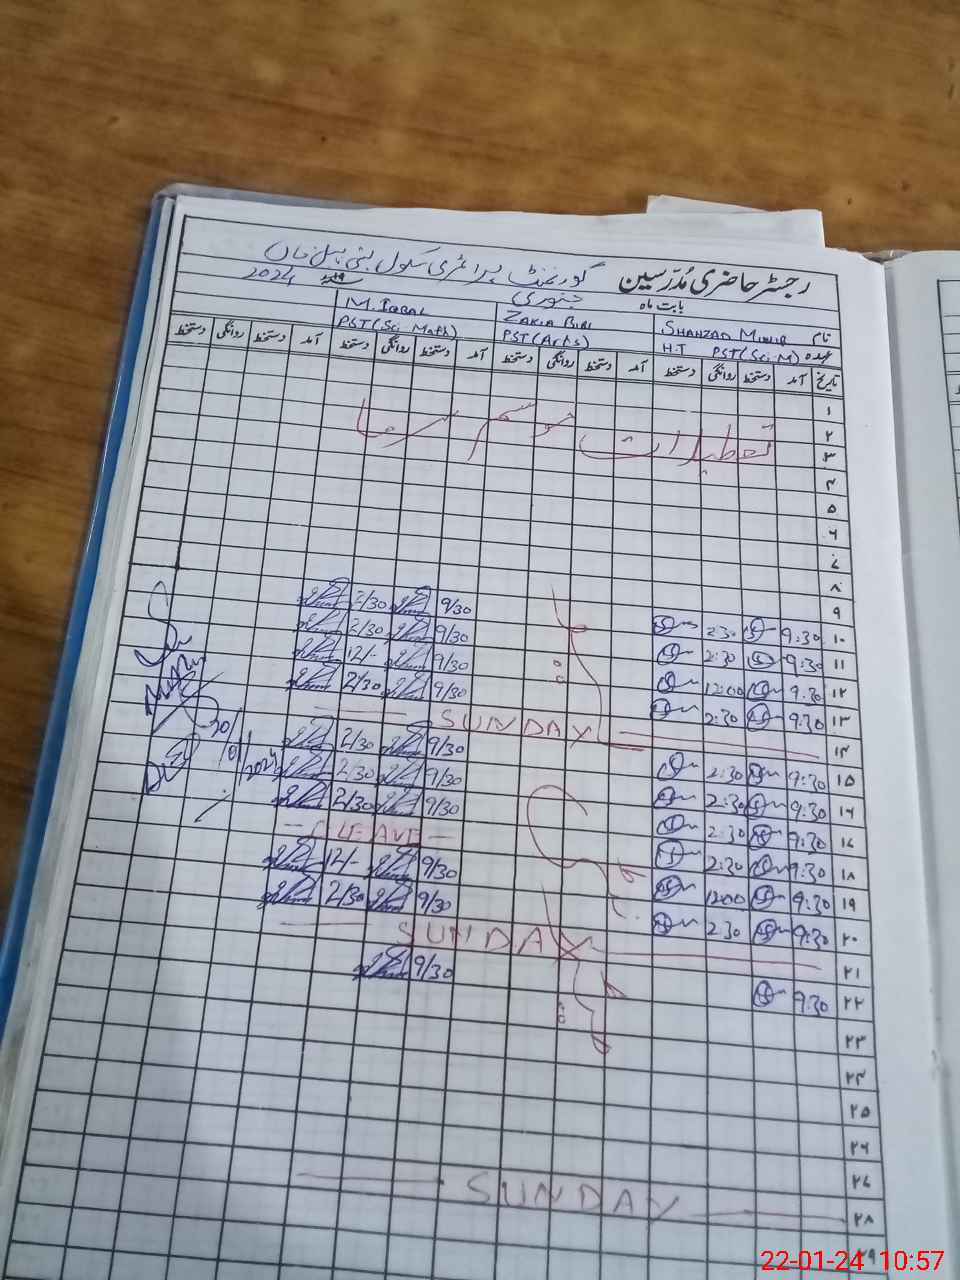 رجسٹر حاضری مُدرّسین گورنمنٹ پرائمری سکول
بابت ماہ جنوری 2024
نام SHAHZAD MUNIR ZAKIA BIBI M. IQBAL
عہدہ H.T PST(Sci-M) PST(Arts) PST(Sci Math)
تاریخ آمد دستخط روانگی دستخط آمد دستخط روانگی دستخط آمد دستخط روانگی دستخط آمد دستخط روانگی دستخط
۱
۲ تعطیلات موسم سرما
۳
۴
۵
۶
۷
۸
۹
۱۰ 9:30 2:30 9/30 2/30
۱۱ 9:30 2:30 9/30 2/30
۱۲ 9:30 12:00 9/30 12/-
۱۳ 9:30 2:30 9/30 2/30
۱۴ SUNDAY
۱۵ 9:30 2:30 9/30 2/30
۱۶ 9:30 2:30 9/30 2/30
۱۷ 9:30 2:30 9/30 2/30
۱۸ 9:30 2:30 LEAVE
۱۹ 9:30 12:00 9/30 12/-
۲۰ 9:30 2:30 9/30 2/30
۲۱ SUNDAY
۲۲ 9:30 9/30
۲۳
۲۴
۲۵
۲۶
۲۷
۲۸ SUNDAY
۲۹
22-01-24 10:57